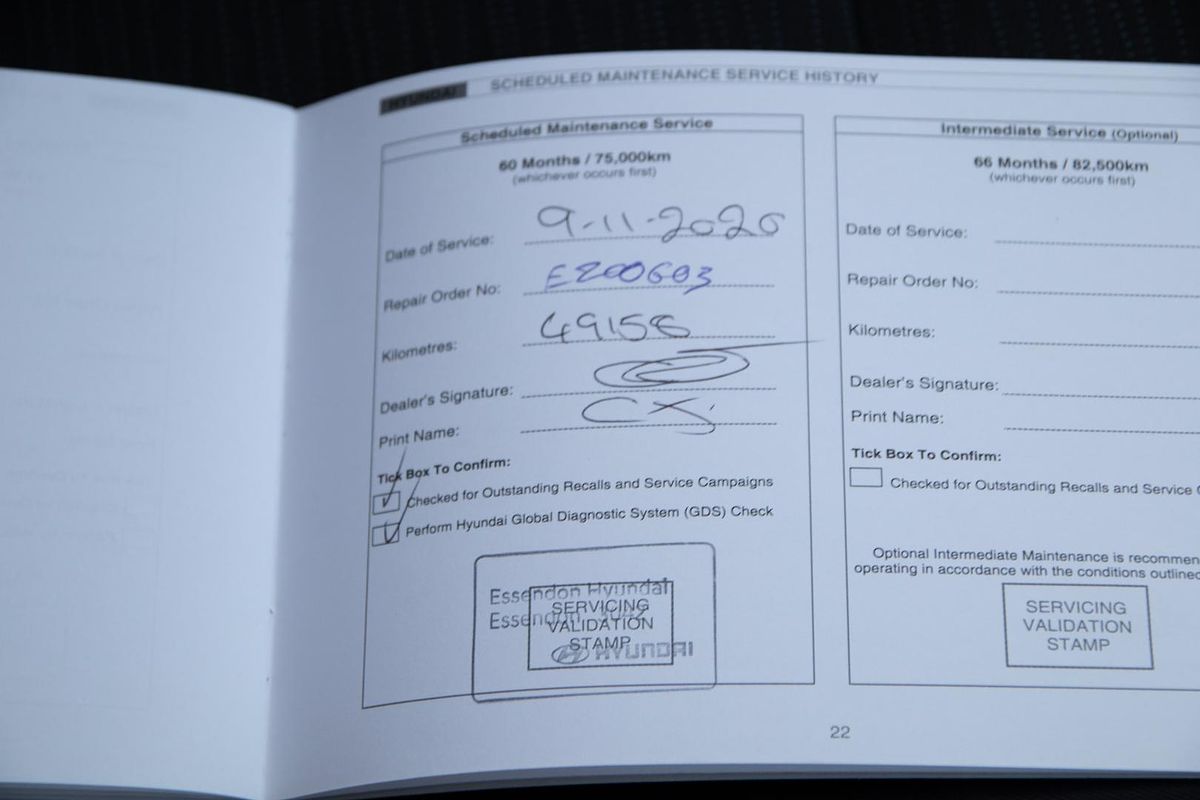 HYUNDAI SCHEDULED MAINTENANCE SERVICE HISTORY
Scheduled Maintenance Service
60 Months / 75,000km
(whichever occurs first)
Date of Service: 9-11-2020
Repair Order No: E200603
Kilometres: 49158
Dealer's Signature:
Print Name: CJ
Tick Box To Confirm:
Checked for Outstanding Recalls and Service Campaigns
Perform Hyundai Global Diagnostic System (GDS) Check
Essendon Hyundai
Essendon 3042
HYUNDAI
SERVICING
VALIDATION
STAMP
Intermediate Service (Optional)
66 Months / 82,500km
(whichever occurs first)
Date of Service:
Repair Order No:
Kilometres:
Dealer's Signature:
Print Name:
Tick Box To Confirm:
Checked for Outstanding Recalls and Service
Optional Intermediate Maintenance is
operating in accordance with the conditions
SERVICING
VALIDATION
STAMP
22